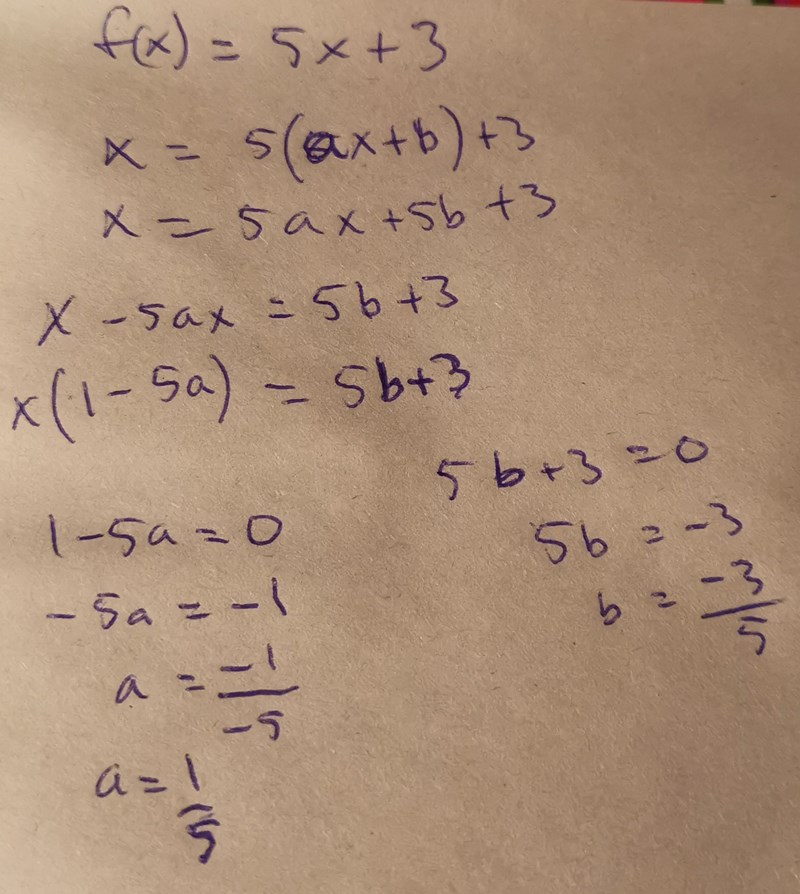 f(x) = 5x + 3
x = 5(ax+b) + 3
x = 5ax + 5b + 3
x - 5ax = 5b + 3
x(1 - 5a) = 5b+3
1 - 5a = 0
-5a = -1
a = -1/-5
a = 1/5
5b + 3 = 0
5b = -3
b = -3/5